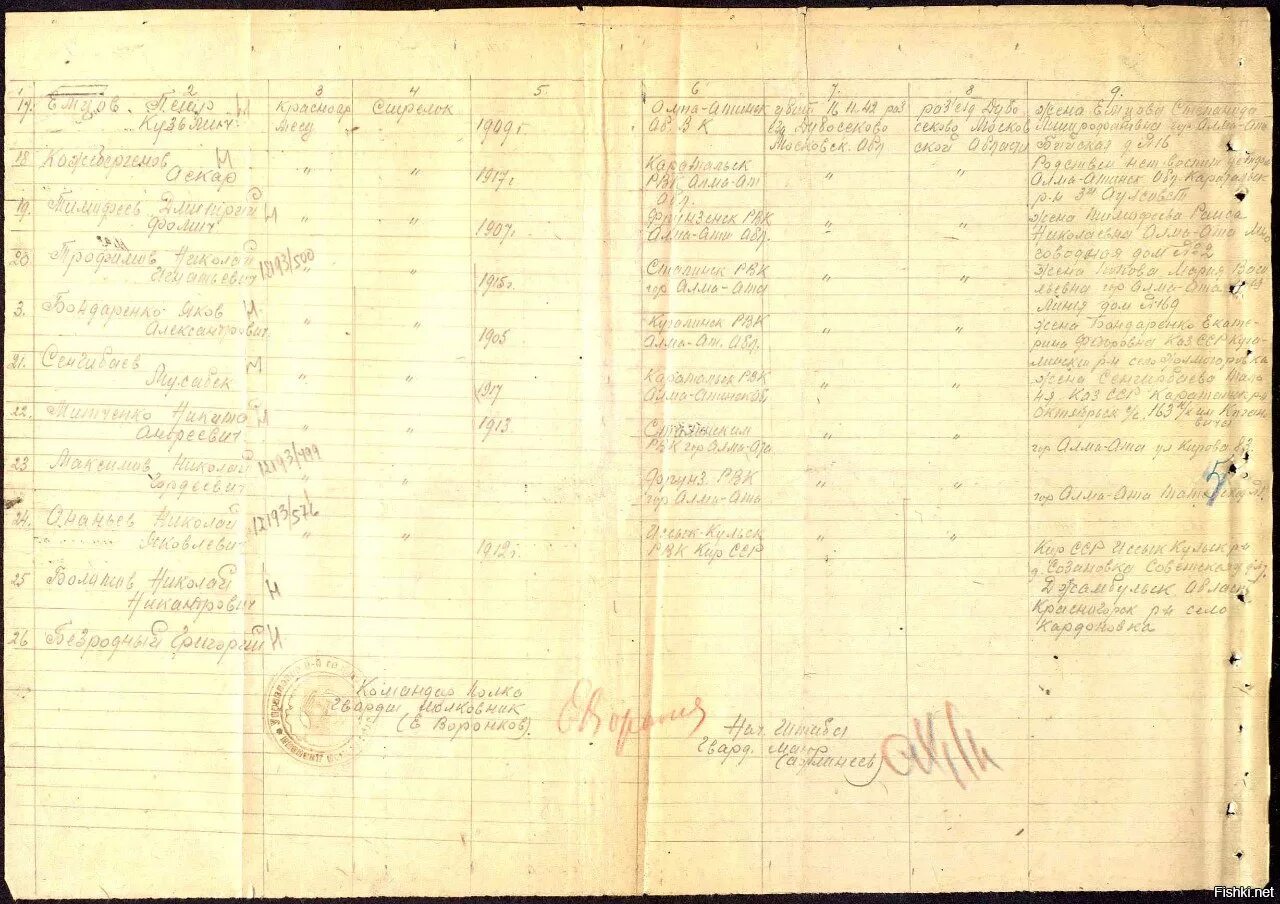 1 2 3 4 5. 6 7. 8 9.
17. Емцов Петр Н Красноар Стрелок Алма-Атинск убит 16.11.42 раз раз'езд Дубо жена Емцова Степанида
Кузьмич меец " 1909 г Об. В К езд Дубосеково секово Москов гор Алма-Ата
Московск. Обл ской Области Бийская д №16
18 Кожебергенов Н Каратальск Родствен нет воспит
Аскар " " 1917 г РВК Алма-Ат " " Алма-Атинск Обл. Каратальск
Обл. р-н 3й Аулсовет
19. Тимофеев Дмитрий Н Фрунзенск РВК жена Тимофеева Раиса
Фомич " " 1907. Алма-Ата Обл. " " Николаевна Алма-Ата
доводная дом №22
20 Трофимов Николай 12193/500 Сталинск РВК жена Мария Васи
Игнатьевич " " 1915 г. гор Алма-Ата " " льевна гор Алма-Ата
линия дом №69
3. Бондаренко Яков Н Кугалинск РВК жена Бондаренко Екате-
Александрович " " 1905 Алма-Ат. Обл. " " рина Федоровна Каз ССР Куга-
линский р-н село
21. Сенгибаев Н Каратальск РВК жена Сенгирбаева
Мусабек " " 1917 Алма-Атинской " " Каз ССР Каратальск р-н
Октябрьск с/с 163
22. Митченко Никита Н Сталинским
Андреевич " " 1913. РВК гор Алма-Ата " " гор Алма-Ата ул Кирова 83
23 Максимов Николай 12193/499 Фрунз. РВК
Гордеевич " " гор Алма-Ата " " гор Алма-Ата
24. Ананьев Николай 12193/576 Иссык-Кульск
Яковлевич " " 1912 г. РВК Кир ССР Кир ССР Иссык Кульск р-н
д Сазановка Советская
25 Болотов Николай Н Джамбульск Област
Никанорович Красногорск р-н село
26 Безродный Григорий Н Кардоновка
Командир Полка
Гвардии Полковник
(Е Воронков)
Нач. Штаба
Гвард. Майор
Fishki.net